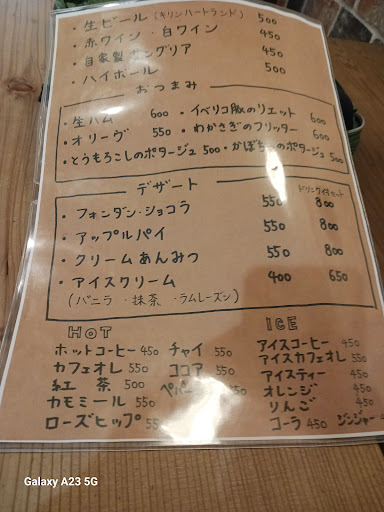 ・生ビール(キリンハートランド) 500
・赤ワイン・白ワイン 450
・自家製サングリア 450
・ハイボール 500
おつまみ
・生ハム 600 ・イベリコ豚のリエット 600
・オリーヴ 550 ・わかさぎのフリッター 600
・とうもろこしのポタージュ 500 ・かぼちゃのポタージュ 500
デザート ドリンク付セット
・フォンダン・ショコラ 550 800
・アップルパイ 550 800
・クリームあんみつ 550 800
・アイスクリーム 400 650
(バニラ・抹茶・ラムレーズン)
HOT ICE
ホットコーヒー 450 チャイ 550 アイスコーヒー 450
カフェオレ 550 ココア 550 アイスカフェオレ 550
紅茶 500 550 アイスティー 450
カモミール 550 オレンジ 450
ローズヒップ 550 りんご 450
コーラ 450 ジンジャー
Galaxy A23 5G